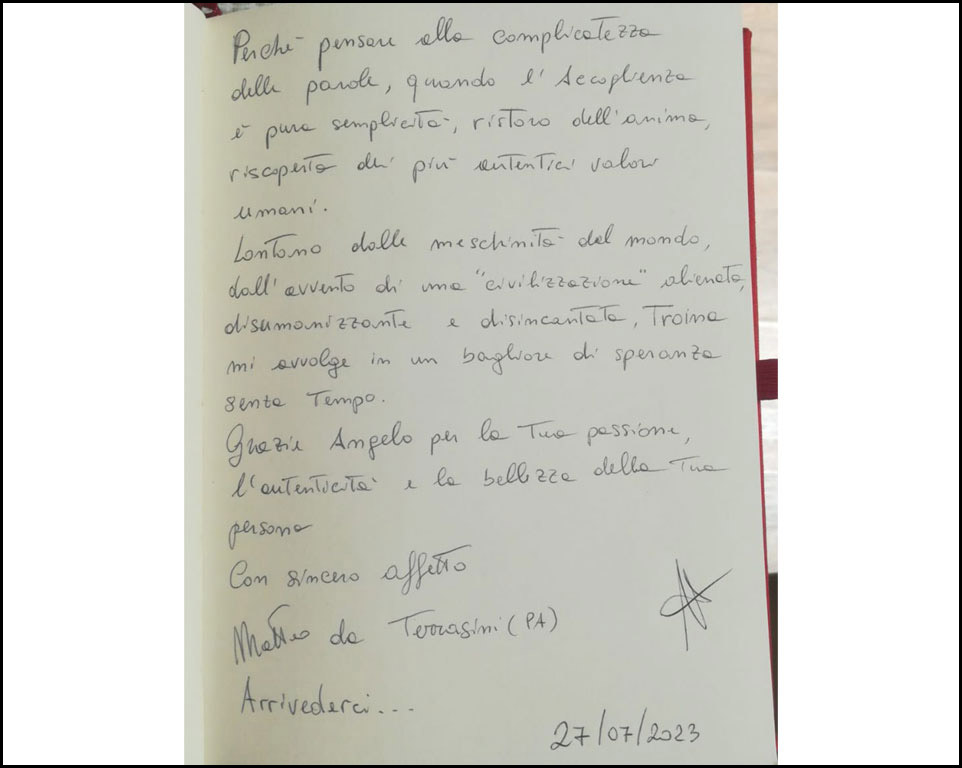 Perché pensare alla complicatezza
delle parole, quando l'Accoglienza
è pura semplicità, ristoro dell'anima,
riscoperta dei più autentici valori
umani.
Lontano dalle meschinità del mondo,
dall'avvento di una "civilizzazione" alienata,
disumanizzante e disincantata, Troina
mi avvolge in un bagliore di speranza
senza Tempo.
Grazie Angelo per la Tua passione,
l'autenticità e la bellezza della Tua
persona
Con sincero affetto
Matteo da Terrasini (PA)
Arrivederci...
27/07/2023